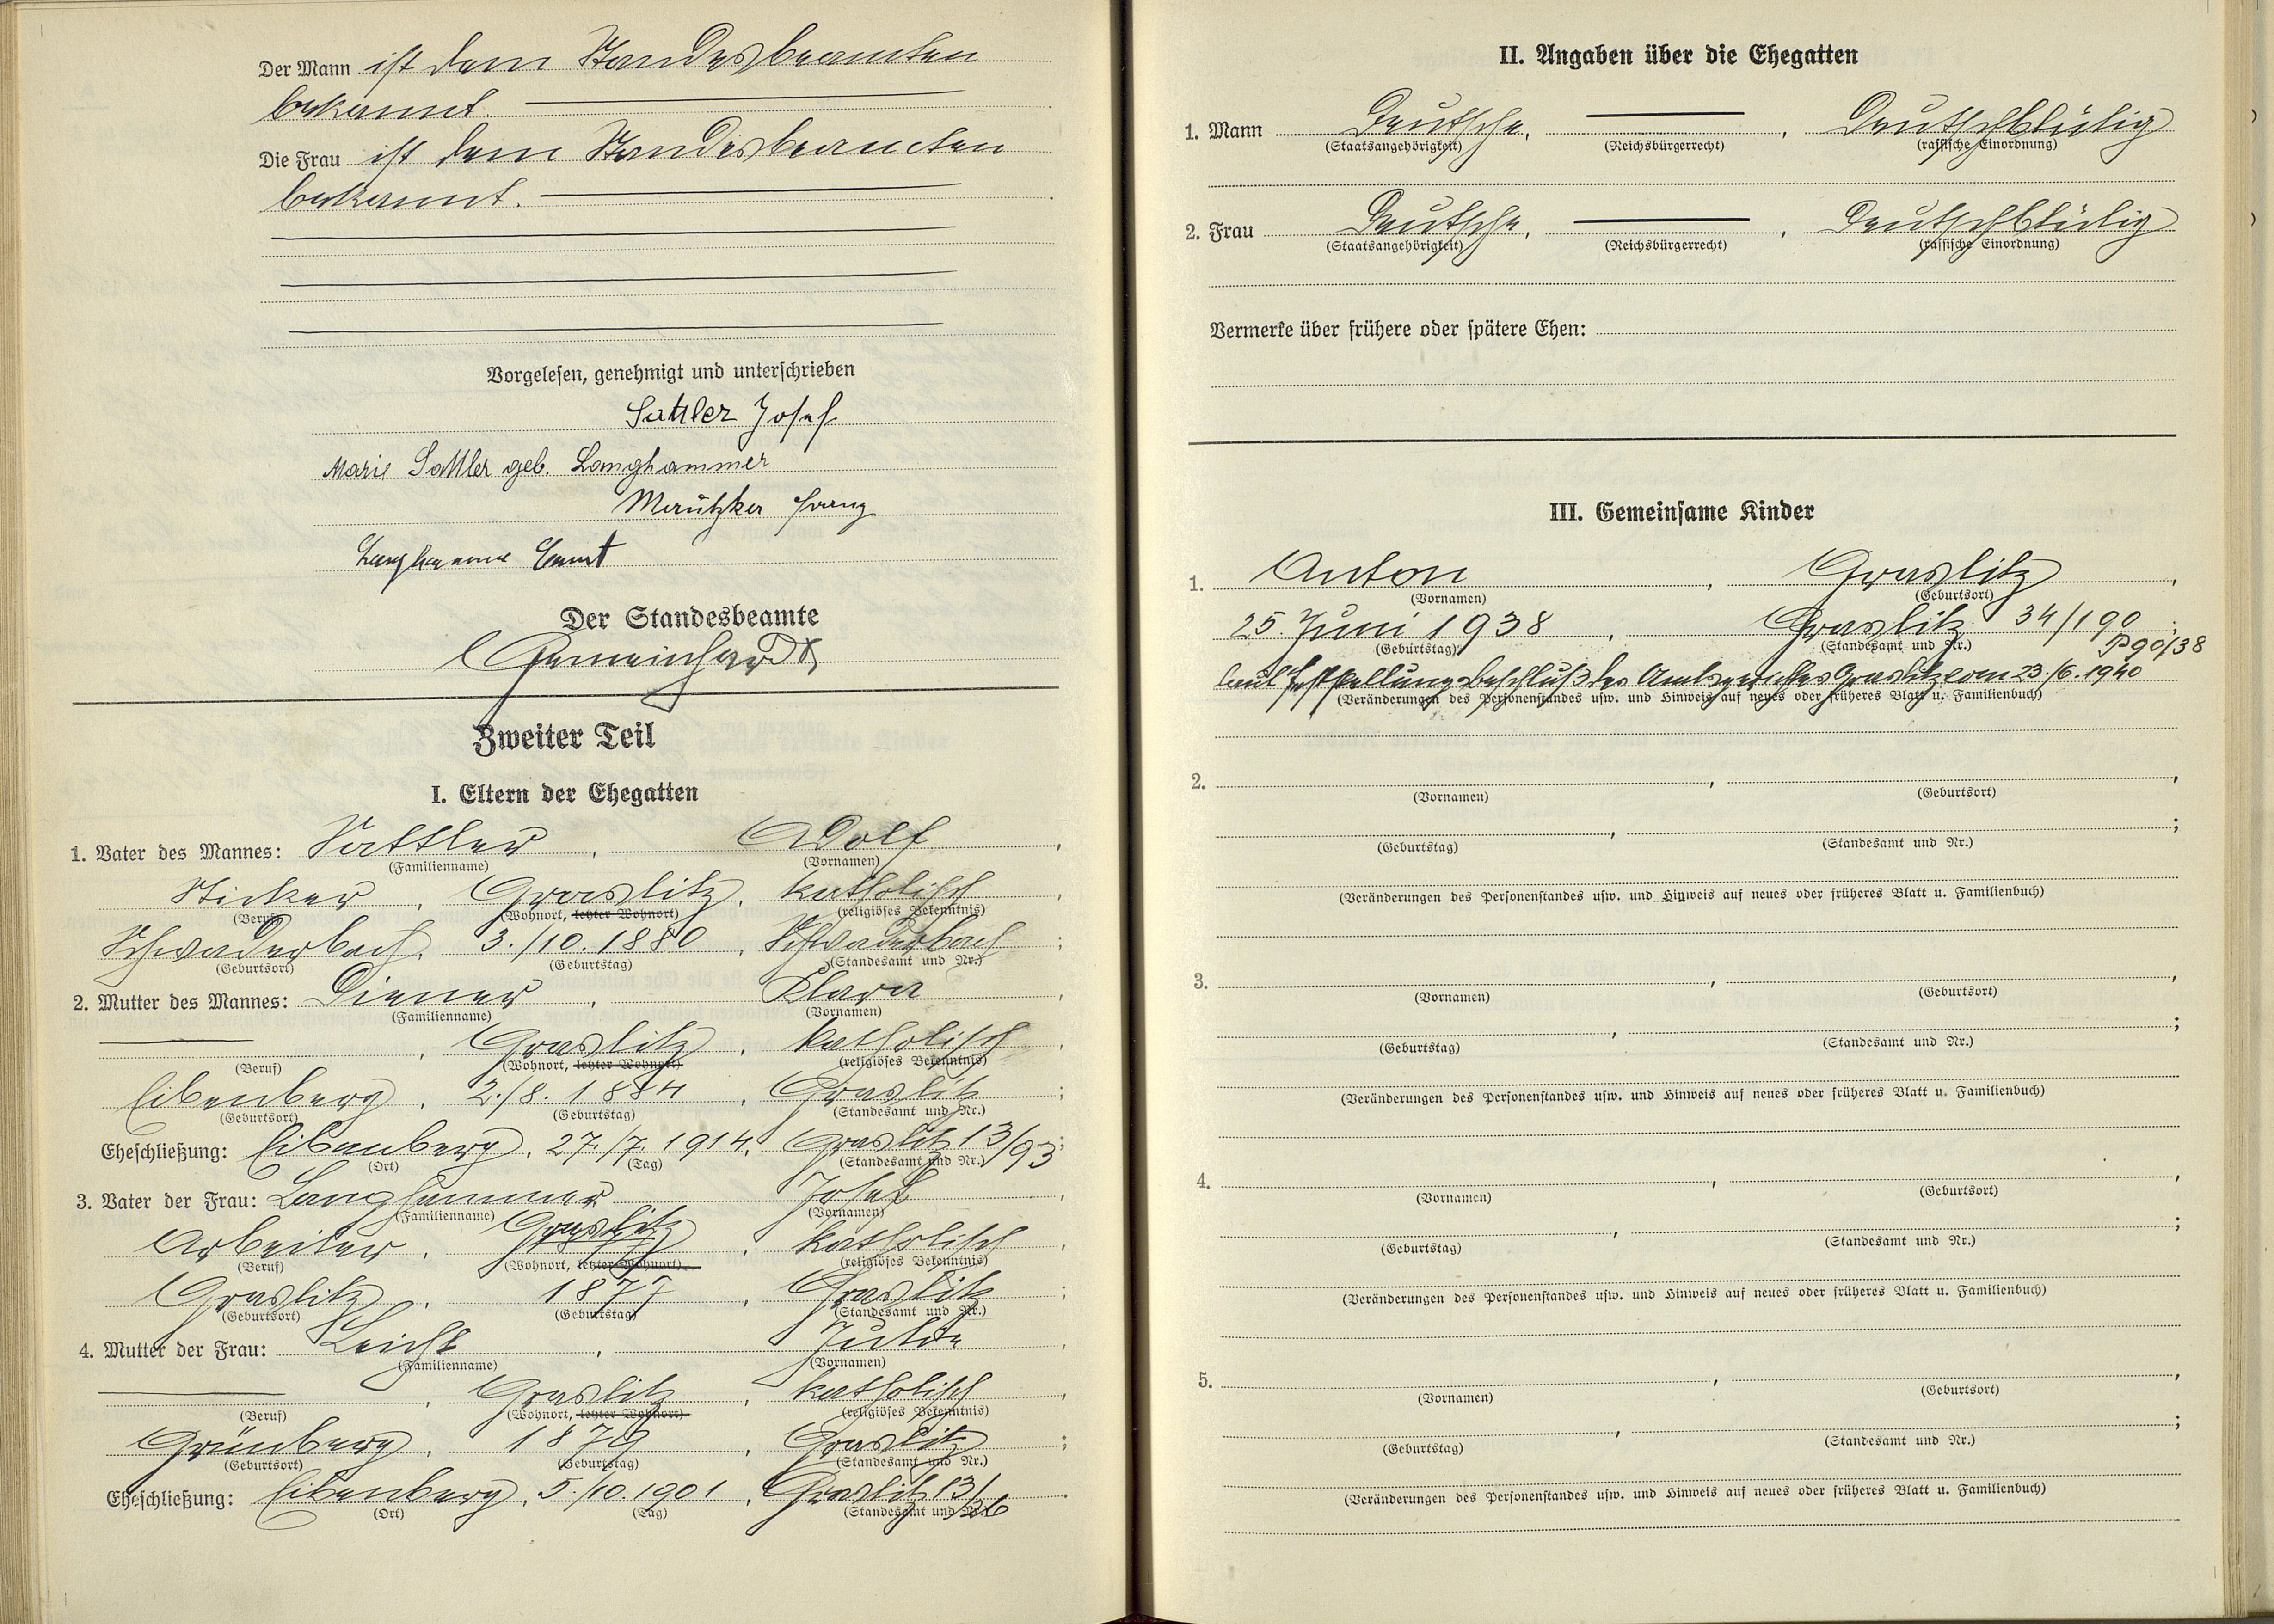 Der Mann ist dem Standesbeamten
bekannt.
Die Frau ist dem Standesbeamten
bekannt.
Vorgelesen, genehmigt und unterschrieben
Sattler Josef
Marie Sattler geb. Langhammer
Franz
Langhammer Ernst
Der Standesbeamte
Gemeinhardt
Zweiter Teil
I. Eltern der Ehegatten
1. Vater des Mannes: Sattler, Adolf,
(Familienname) (Vornamen)
Sticker, Graslitz, katholisch,
(Beruf) (Wohnort, letzter Wohnort) (religiöses Bekenntnis)
Schwaderbach, 3./10. 1880, Schwaderbach;
(Geburtsort) (Geburtstag) (Standesamt und Nr.)
2. Mutter des Mannes: Diener, Klara,
(Familienname) (Vornamen)
, Graslitz, katholisch,
(Beruf) (Wohnort, letzter Wohnort) (religiöses Bekenntnis)
Eibenberg, 2./8. 1884, Graslitz;
(Geburtsort) (Geburtstag) (Standesamt und Nr.)
Eheschließung: Eibenberg, 27./7. 1914, Graslitz 13/93;
(Ort) (Tag) (Standesamt und Nr.)
3. Vater der Frau: Langhammer Josef,
(Familienname) (Vornamen)
Arbeiter, Graslitz, katholisch,
(Beruf) (Wohnort, letzter Wohnort) (religiöses Bekenntnis)
Graslitz, 1877, Graslitz;
(Geburtsort) (Geburtstag) (Standesamt und Nr.)
4. Mutter der Frau: Leicht, Julie,
(Familienname) (Vornamen)
, Graslitz, katholisch,
(Beruf) (Wohnort, letzter Wohnort) (religiöses Bekenntnis)
Grünberg, 1879, Graslitz;
(Geburtsort) (Geburtstag) (Standesamt und Nr.)
Eheschließung: Eibenberg, 5./10. 1901, Graslitz 13/26.
(Ort) (Tag) (Standesamt und Nr.)
II. Angaben über die Ehegatten
1. Mann Deutsche, , Deutschblütig
(Staatsangehörigkeit) (Reichsbürgerrecht) (rassische Einordnung)
2. Frau Deutsche, , Deutschblütig
(Staatsangehörigkeit) (Reichsbürgerrecht) (rassische Einordnung)
Vermerke über frühere oder spätere Ehen:
III. Gemeinsame Kinder
1. Anton, Graslitz,
(Vornamen) (Geburtsort)
25. Juni 1938, Graslitz 34/190;
(Geburtstag) (Standesamt und Nr.) P 90/38
laut Feststellungsbeschluß des Amtsgerichtes Graslitz vom 23./6. 1940
(Veränderungen des Personenstandes usw. und Hinweis auf neues oder früheres Blatt u. Familienbuch)
2. , ,
(Vornamen) (Geburtsort)
, ;
(Geburtstag) (Standesamt und Nr.)
(Veränderungen des Personenstandes usw. und Hinweis auf neues oder früheres Blatt u. Familienbuch)
3. , ,
(Vornamen) (Geburtsort)
, ;
(Geburtstag) (Standesamt und Nr.)
(Veränderungen des Personenstandes usw. und Hinweis auf neues oder früheres Blatt u. Familienbuch)
4. , ,
(Vornamen) (Geburtsort)
, ;
(Geburtstag) (Standesamt und Nr.)
(Veränderungen des Personenstandes usw. und Hinweis auf neues oder früheres Blatt u. Familienbuch)
5. , ,
(Vornamen) (Geburtsort)
, ;
(Geburtstag) (Standesamt und Nr.)
(Veränderungen des Personenstandes usw. und Hinweis auf neues oder früheres Blatt u. Familienbuch)